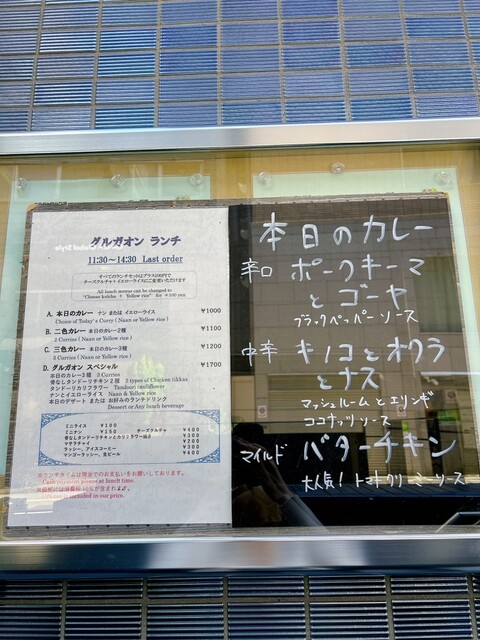 グルガオン ランチ
11:30～14:30 Last order
すべてのランチセットはプラス200円で
チーズクルチャ+イエローライスにご変更いただけます
All lunch menus can be changed to
"Cheese kulcha + Yellow rice" for +200 yen
A. 本日のカレー ナン または イエローライス ¥1000
Choice of Today's Curry (Naan or Yellow rice)
B. 二色カレー 本日のカレー2種 ¥1100
2 Curries (Naan or Yellow rice)
C. 三色カレー 本日のカレー3種 ¥1200
3 Curries (Naan or Yellow rice)
D. グルガオン スペシャル ¥1700
本日のカレー3種 3 Curries
骨なしタンドーリチキン2種 2 types of Chicken tikkas
タンドーリカリフラワー Tandoori cauliflower
ナンとイエローライス Naan & Yellow rice
本日のデザート または お好みのランチドリンク
Dessert or Any lunch beverage
ミニライス ¥100
ミニナン ¥150 チーズクルチャ ¥400
骨なしタンドーリチキンとカリフラワー
マサラチャイ ¥200
ラッシー、アイスコーヒー ¥300
マンゴーラッシー、生ビール ¥400
※ランチタイムは現金でのお支払いをお願いしております。
Cash payment please at lunch time.
※価格には消費税10%が含まれます。
10% tax is included in our price.
本日のカレー
辛口 ポークキーマ
とゴーヤ
ブラックペッパーソース
中辛 キノコとオクラ
とナス
マッシュルームとエリンギ
ココナッツソース
マイルド バターチキン
大人気! トマトクリーミーソース